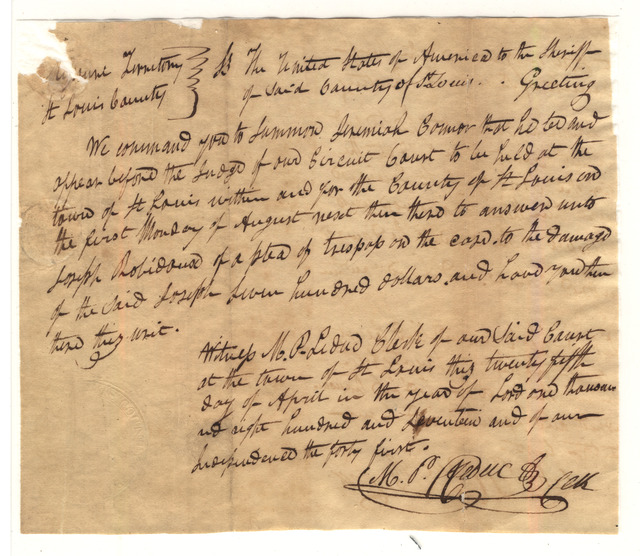 Territory } Ss The United States of America to the Sheriff
St Louis County } of Said County of St Louis. Greeting
We command you to Summon Jeremiah Connor that he be and
appear before the Judge of our Circuit Court to be held at the
town of St Louis within and for the County of St Louis on
the first Monday of August next then there to answer unto
Joseph Robidoux of a plea of trespass on the case, to the damage
of the Said Joseph Seven hundred dollars. and have you then
there this writ.
Witness M. P. Leduc Clerk of our Said Court
at the town of St Louis this twenty fifth
day of April in the year of Lord one thousan
nd eight hundred and Seventeen and of our
Independence the forty first.
M. P. Leduc Clk